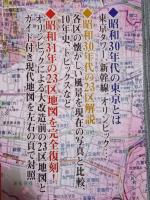 ◆昭和30年代の東京とは
東京タワー、新幹線、オリンピック…
◆昭和30年代の23区解説
各区の懐かしい風景を現在の写真と比較。
10年史、トピックスなど
◆昭和31年の23区地図を完全復刻!
オリンピックによる大改造前の23区地図と
ガイド付き現代地図を左右の頁で対照。